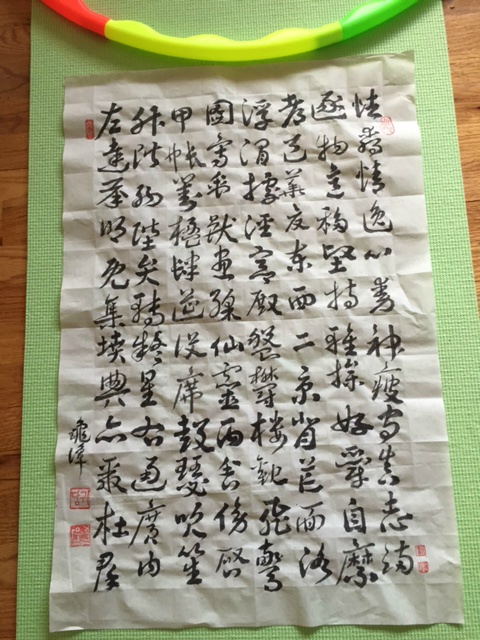 性靜情逸心動神疲守真志滿
逐物意移堅持雅操好爵自縻
都邑華夏東西二京背芒面洛
浮渭據涇宮殿盤鬱樓觀飛驚
圖寫禽獸畫彩仙靈丙舍傍啟
甲帳對楹肆筵設席鼓瑟吹笙
升階納陛弁轉疑星右通廣內
左達承明既集墳典亦聚